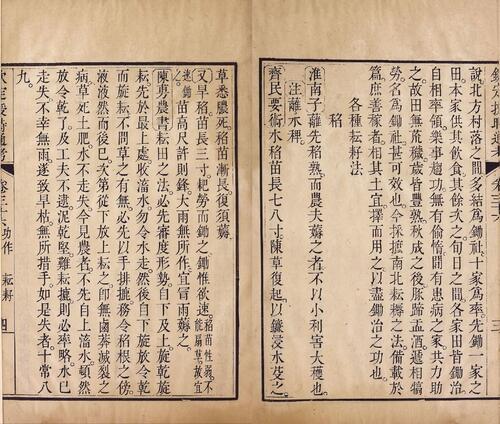 說北方村落之間多結為鋤社十家為率先鋤一家之
田本家供其飲食其餘次之旬日之間各家田皆鋤治
自相率領樂事趨功無有偷惰間有患病之家共力助
之故田無荒穢歲皆豐熟秋成之後豚蹄盂酒遞相犒
勞名為鋤社甚可效也今採摭南北耘耨之法備載於
篇庶善稼者相其土宜擇而用之以盡鋤治之功也
各種耘耔法
稻
淮南子蘺先稻熟而農夫薅之者不以小利害大穫也
注蘺水稗
齊民要術水稻苗長七八寸陳草復起以鐮浸水芟之
草悉膿死稻苗漸長復須薅
又旱稻苗長三寸耙勞而鋤之鋤惟欲速稻苗性弱不能扇草故宜
速鋤之苗高尺許則鋒大雨無所作宜冒雨薅之
陳旉農書耘田之法必先審度形勢自下及上旋乾旋
耘先於最上處收滀水勿令水走然後自下旋放令乾
而旋耘不問草之有無必先以手排摝務令稻根之傍
液液然而後已次第從下放上耘之即無鹵莽滅裂之
病草死土肥水不走失今見農者不先自上滀水頓然
放令乾了及工夫不逮泥乾堅難耘摝則必率略水已
走失不幸無雨遂致旱枯無所措手如是失者十常八
九
欽定授時通考 卷三十 功作 耘耔 四